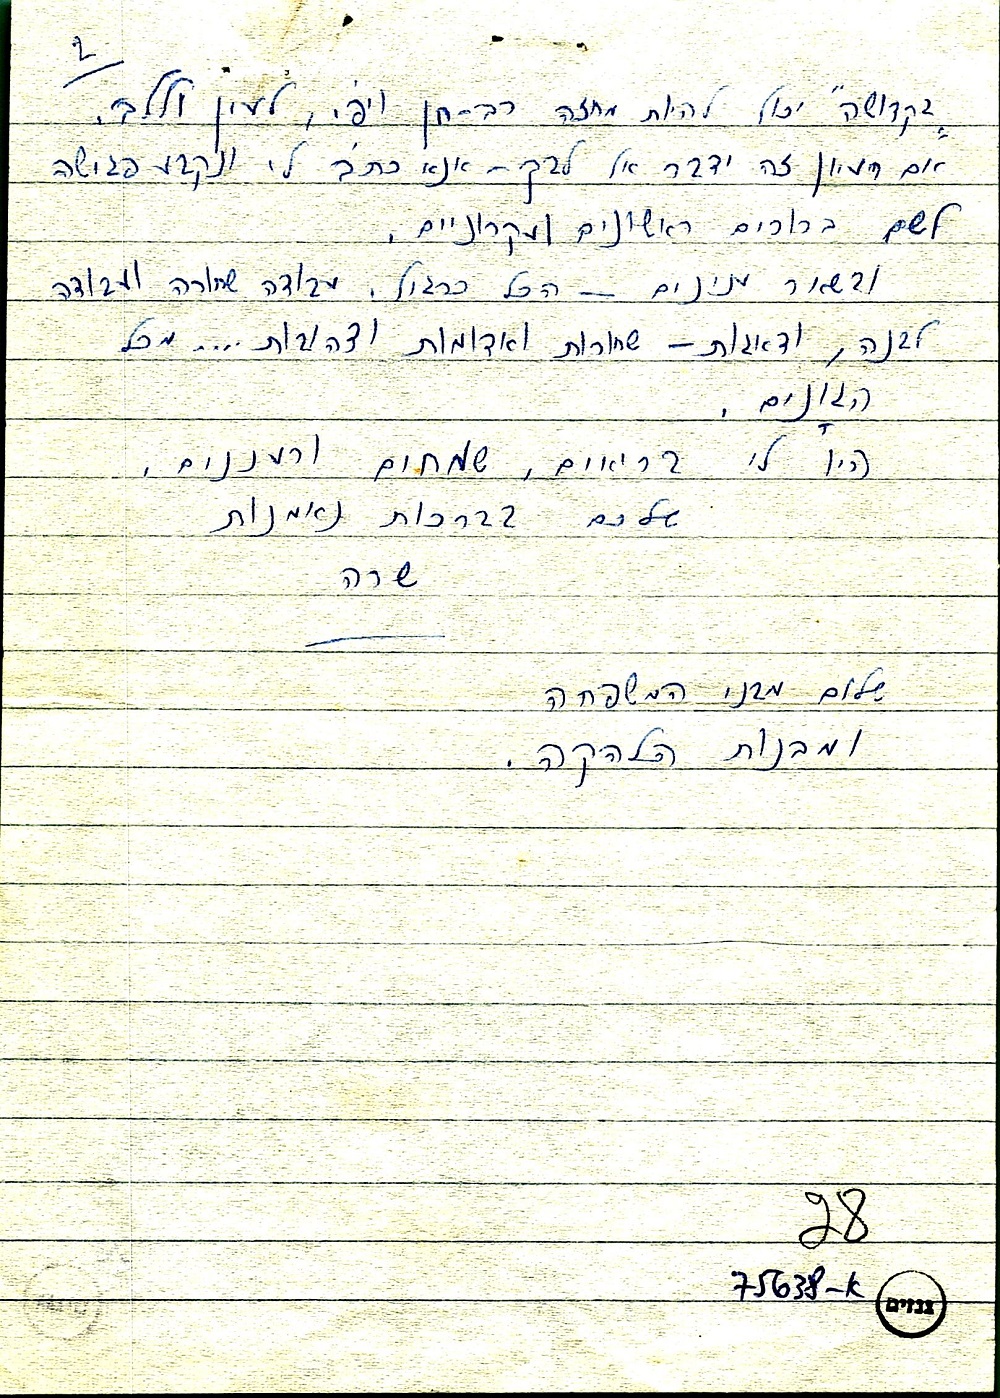 2
בקדושה" יכול להיות מחזה רב-חן ויפי, לעין וללב.
אם רעיון זה ידבר אל לבך – אנא כתב לי ונקבע פגישה
לשם ברורים ראשונים ועקרוניים.
ובשאר ענינים – הכל כרגיל. עבודה שחורה ועבודה
לבנה, ודאגות – שחורות ואדומות וצהובות .... מכל
הגונים.
היו לי בריאים, שמחים ורעננים,
שלכם בברכות נאמנות
שרה
שלום מבני המשפחה
ומבנות הלהקה.
28
75638-א